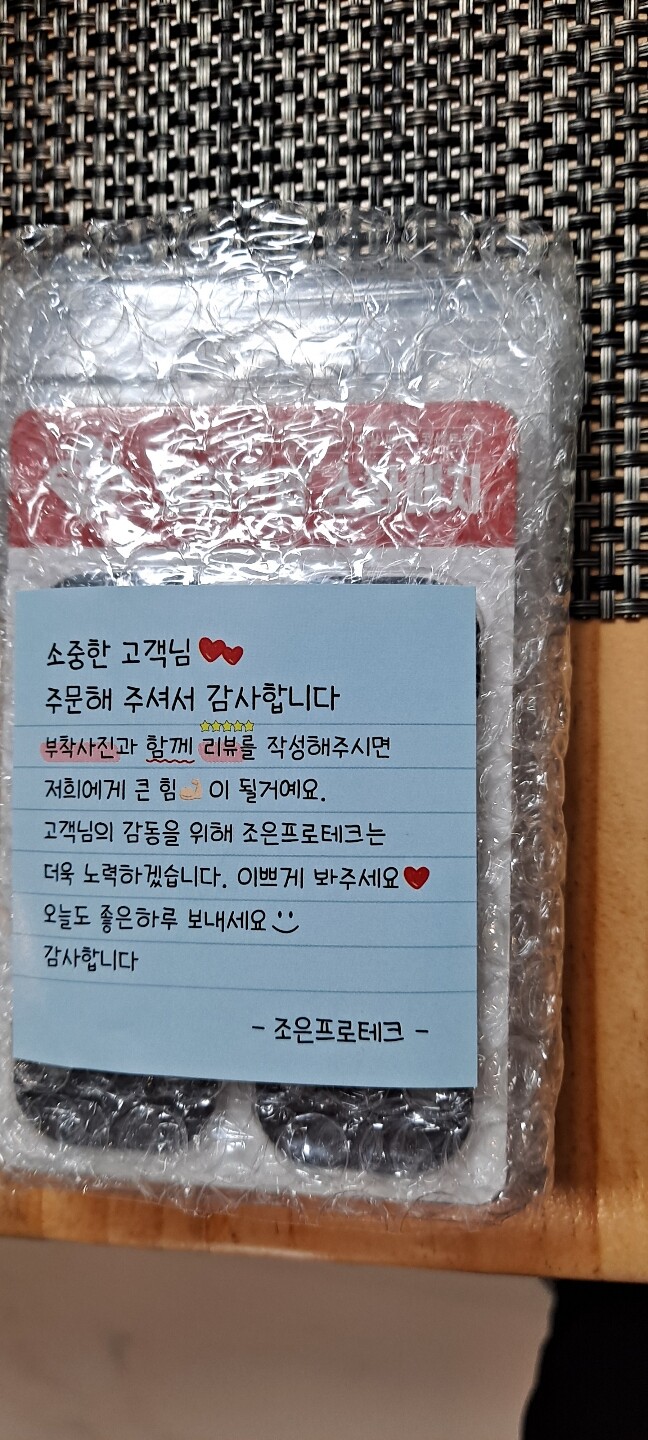 소중한 고객님
주문해 주셔서 감사합니다
부착사진과 함께 리뷰를 작성해주시면
저희에게 큰 힘💪🏻이 될거예요.
고객님의 감동을 위해 조은프로테크는
더욱 노력하겠습니다. 이쁘게 봐주세요
오늘도 좋은하루 보내세요
감사합니다
- 조은프로테크 -